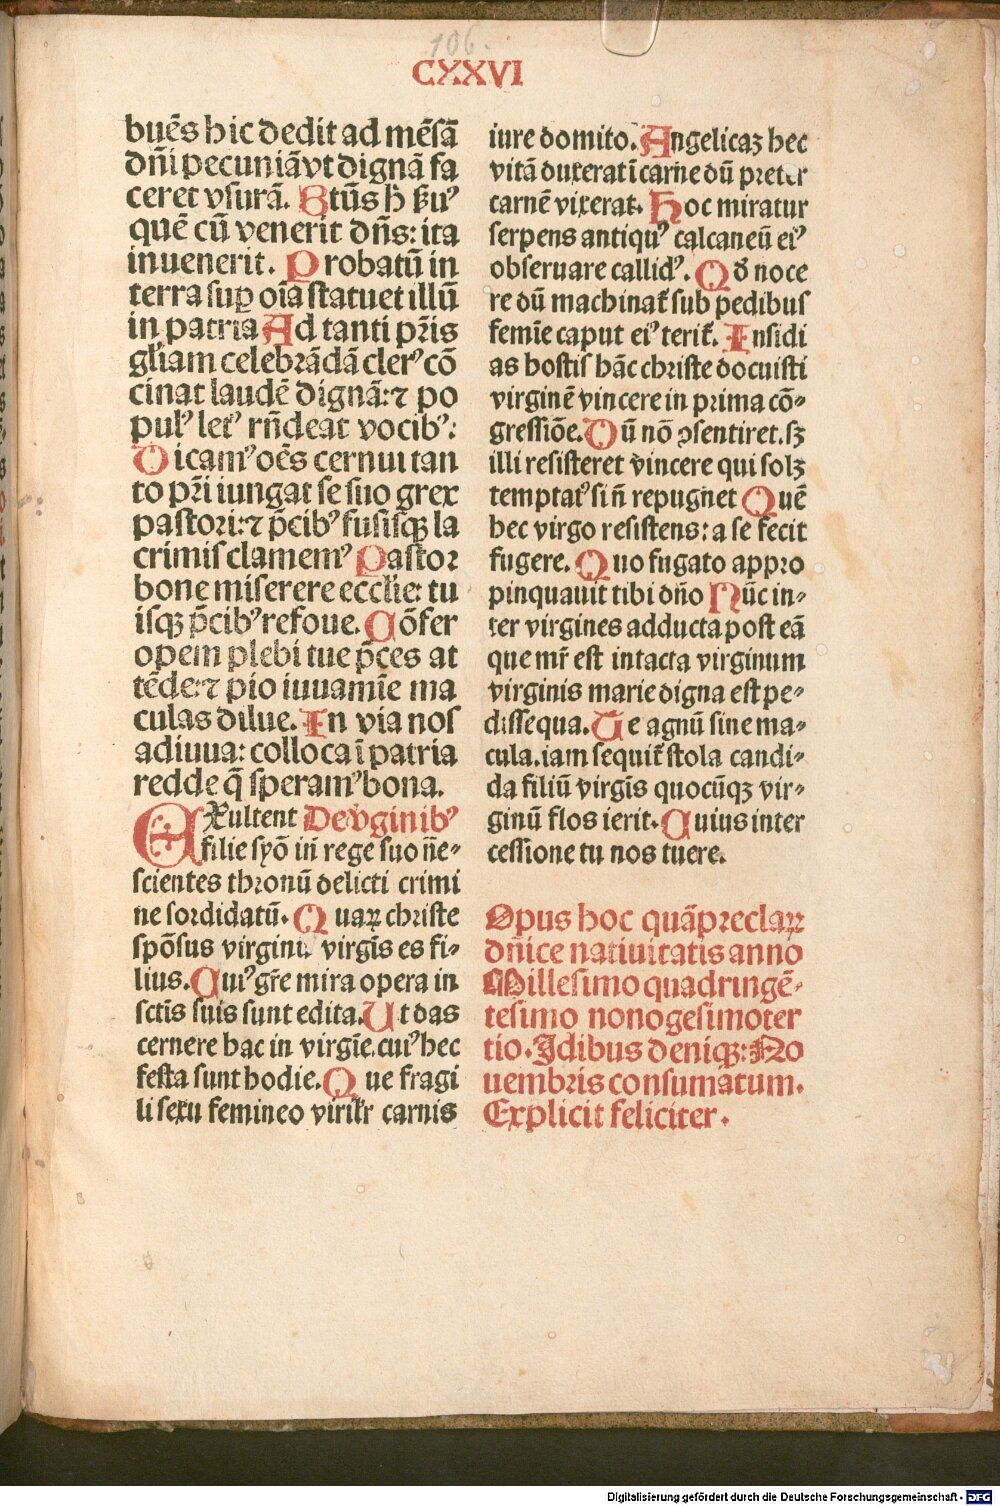 106.
CXXVI
buēs hic dedit ad mēsā
dn̄i pecuniā vt dignā fa
ceret vsurā. Btūs h̄ ẜuꝰ
quē cū venerit dn̄s: ita
inuenerit. Probatū in
terra suꝑ oīa statuet illū
in patria Ad tanti pr̄is
gl̄iam celebrādā clerꝰ cō
cinat laudē dignā: ⁊ po
pulꝰ letꝰ rn̄deat vocibꝰ:
Dicamꝰ oēs cernui tan
to pr̄i iungat se suo grex
pastori: ⁊ p̄cibꝰ fusisqꝫ la
crimis clamemꝰ Pastor
bone miserere eccl̄ie: tu
isqꝫ p̄cibꝰ refoue. Cōfer
opem plebi tue p̄ces at
tēde: ⁊ pio iuuamīe ma
culas dilue. In via nos
adiuua: colloca ī patria
redde q̄ speramꝰ bona.
EXultent De v̄ginibꝰ
filie syō in̄ rege suo n̄e⸗
scientes thronū delicti crimi
ne sordidatū. Quaꝝ christe
spōsus virginū virgīs es fi⸗
lius. Cuiꝰ gr̄e mira opera in
sctīs suis sunt edita. Ut das
cernere hac in virgīe. cuiꝰ hec
festa sunt hodie. Que fragi
li sexu femineo virilr̄ carnis
iure domito. Angelicaꝫ hec
vitā duxerat ī carne dū preter
carnē vixerat. Hoc miratur
serpens antiquꝰ calcaneū eiꝰ
obseruare callidꝰ. Qd̄ noce
re dū machinat̄ sub pedibus
femīe caput eiꝰ terit̄. Insidi
as hostis hāc christe docuisti
virginē vincere in prima cō⸗
gressiōe. Dū nō ꝯsentiret. sꝫ
illi resisteret vincere qui solꝫ
temptatꝰ si n̄ repugnet Quē
hec virgo resistens: a se fecit
fugere. Quo fugato appro
pinquauit tibi dn̄o Nūc in⸗
ter virgines adducta post eā
que mr̄ est intacta virginum
virginis marie digna est pe⸗
dissequa. Ue agnū sine ma⸗
cula. iam sequit̄ stola candi⸗
da filiū virgīs quocūqꝫ vir⸗
ginū flos ierit. Cuius inter
cessione tu nos tuere.
Opus hoc quā preclaꝝ
dn̄ice natiuitatis anno
Millesimo quadringē⸗
tesimo nonogesimoter
tio. Idibus deniqꝫ: No
uembris consumatum.
Explicit feliciter.
Digitalisierung gefördert durch die Deutsche Forschungsgemeinschaft - DFG